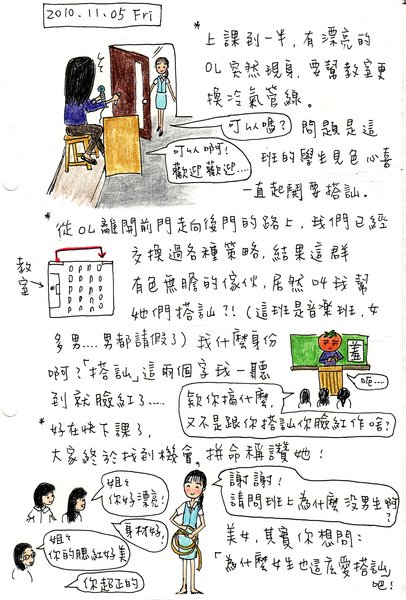 2010.11.05 Fri
*上課到一半,有漂亮的
OL突然現身,要幫教室更
換冷氣管線。
可以嗎?
問題是這
可以啊!
歡迎歡迎....
班的學生見色心喜
一直起鬨要搭訕.
*從OL離開前門走向後門的路上,我們已經
交換過各種策略,結果這群
教室
有色無膽的傢伙,居然叫我幫
她們搭訕?!(這班是音樂班,女
多男....男都請假了)我什麼身份
啊?「搭訕」這兩個字我一聽
到就臉紅了.....
羞
呃....
欸你搞什麼,
又不是跟你搭訕你臉紅作啥?
*好在快下課了,
大家終於找到機會,拼命稱讚她!
姐姐
你好漂亮!
身材好
姐姐
你的腮紅好美
你超正的
謝謝!
請問班上為什麼沒男生啊?
美女,其實你想問:
「為什麼女生也這麼愛搭訕」
吧!